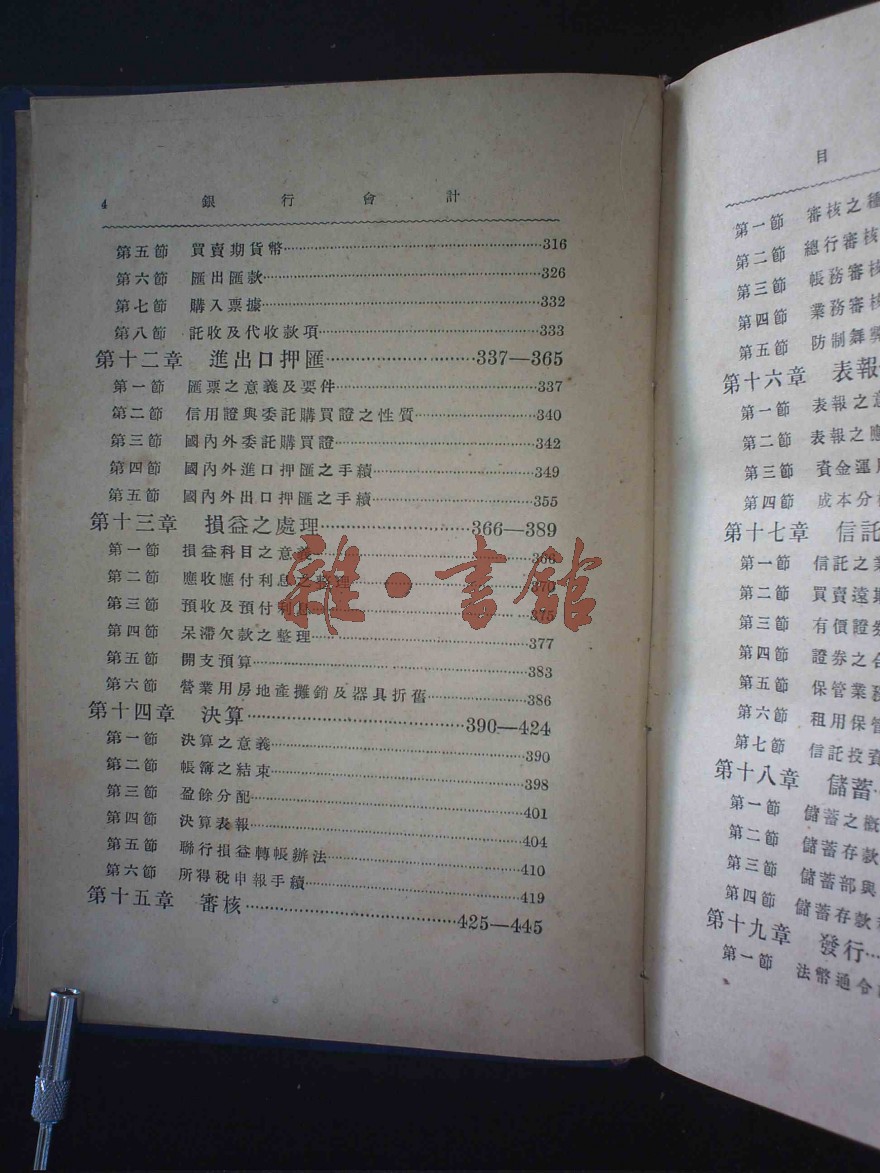 4 銀行會計
第五節 買賣期貨幣……316
第六節 匯出匯款……326
第七節 購入票據……332
第八節 託收及代收款項……333
第十二章 進出口押匯……337—365
第一節 匯票之意義及要件……337
第二節 信用證與委託購買證之性質……340
第三節 國內外委託購買證……342
第四節 國內外進口押匯之手續……349
第五節 國內外出口押匯之手續……355
第十三章 損益之處理……366—389
第一節 損益科目之意義……366
第二節 應收應付利息之整理……370
第三節 預收及預付利息……375
第四節 呆滯欠款之整理……377
第五節 開支預算……383
第六節 營業用房地產攤銷及器具折舊……386
第十四章 決算……390—424
第一節 決算之意義……390
第二節 帳簿之結束……398
第三節 盈餘分配……401
第四節 決算表報……404
第五節 聯行損益轉帳辦法……410
第六節 所得稅申報手續……419
第十五章 審核……425—445
雜·書館
目
第一節 審核之
第二節 總行審核
第三節 帳務審核
第四節 業務審核
第五節 防制舞弊
第十六章 表報
第一節 表報之
第二節 表報之應
第三節 資金運用
第四節 成本分
第十七章 信託
第一節 信託之業
第二節 買賣遠期
第三節 有價證券
第四節 證券之
第五節 保管業務
第六節 租用保管
第七節 信託投資
第十八章 儲蓄
第一節 儲蓄之概
第二節 儲蓄存款
第三節 儲蓄部與
第四節 儲蓄存款
第十九章 發行……
第一節 法幣通令